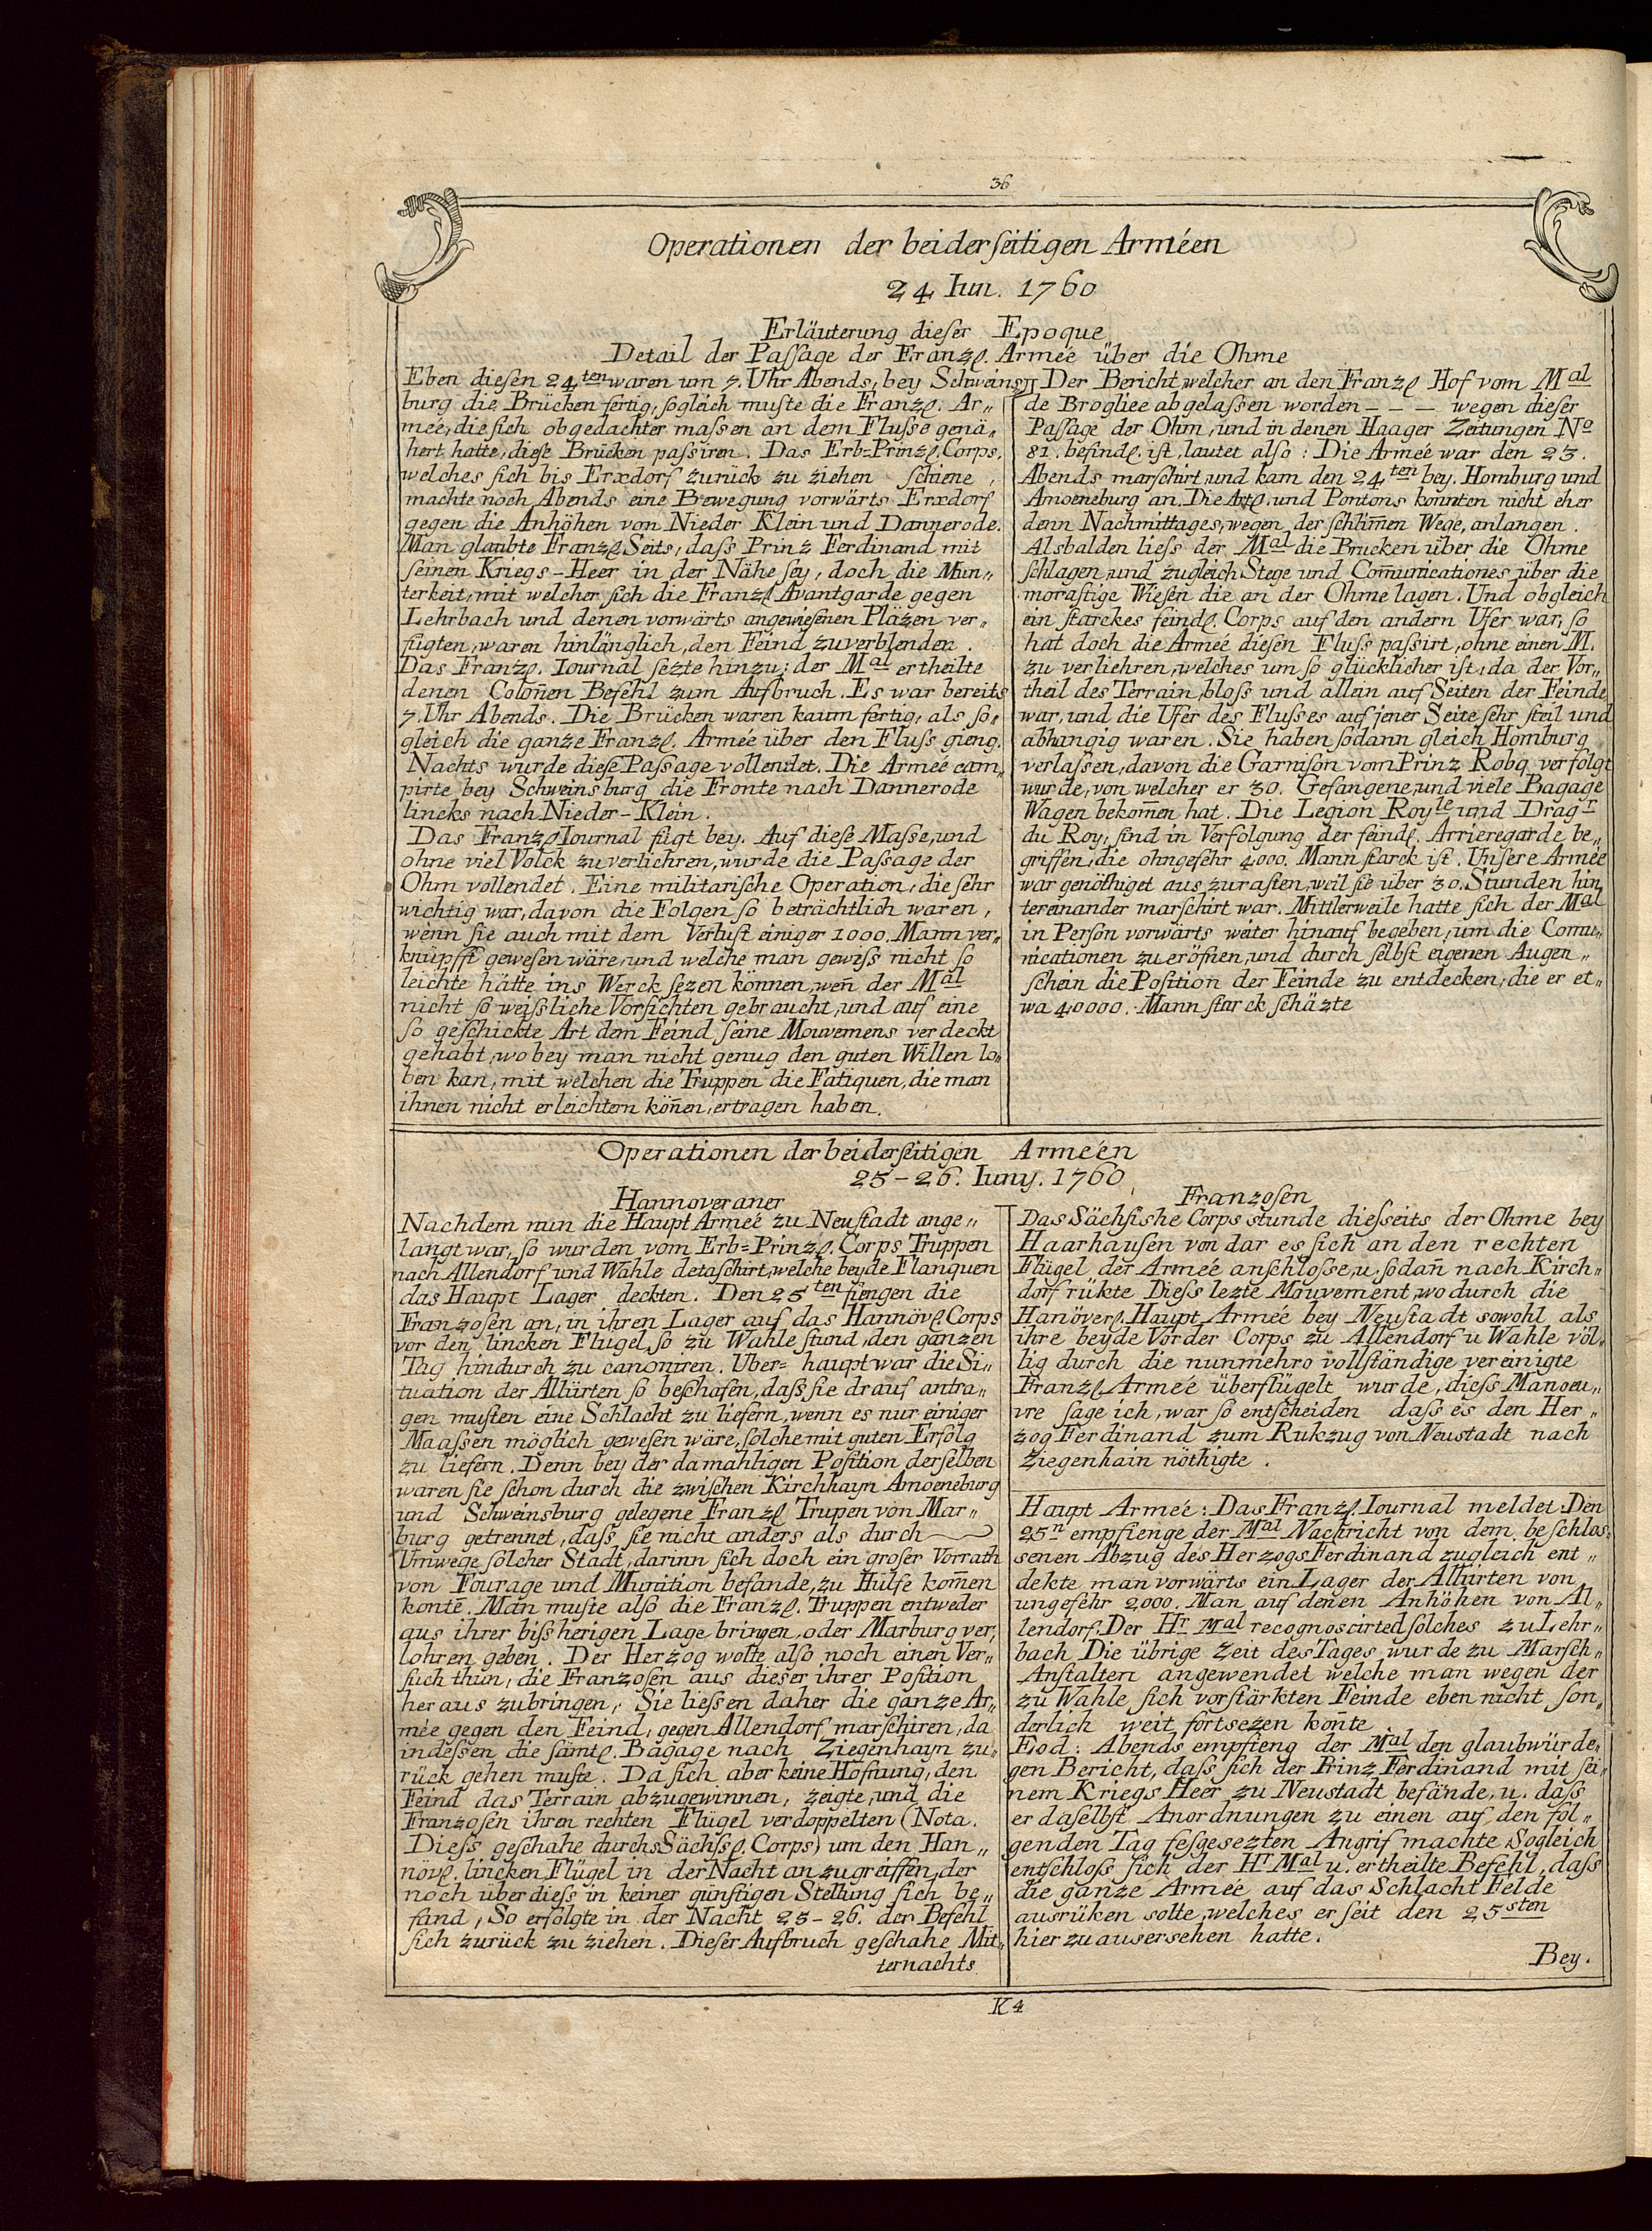 36
Operationen der beiderſeitigen Arméen
24 Iun. 1760
Erläuterung dieſer Epoque
Detail der Paſſage der Franzſ. Armée über die Ohme
Eben dieſen 24ten waren um 7. Uhr Abends, bey Schweins„
burg die Brücken fertig, ſogleich muſte die Franzſ. Ar„
mée, die ſich obgedachter maſsen an dem Fluſse genä„
hert hatte, dieſe Brücken paſsiren. Das Erb=Prinzſ. Corps,
welches ſich bis Erxdorf zurück zu ziehen ſchiene,
machte noch Abends eine Bewegung vorwärts Erxdorf
gegen die Anhöhen von Nieder Klein und Dannerode.
Man glaubte Franzſ Seits, daſs Prinz Ferdinand mit
ſeinen Kriegs-Heer in der Nähe ſey, doch die Mun„
terkeit, mit welcher ſich die Franzſ Avantgarde gegen
Lehrbach und denen vorwärts angewieſenen Pläzen ver„
fügten, waren hinlänglich, den Feind zuverblenden.
Das Franzſ. Iournal ſezte hinzu: der Mal ertheilte
denen Colon̄en Befehl zum Aufbruch. Es war bereits
7. Uhr Abends. Die Brücken waren kaum fertig, als ſo„
gleich die ganze Franzſ. Armée über den Fluſs gieng.
Nachts wurde dieſe Paſsage vollendet. Die Armée cam„
pirte bey Schweinsburg die Fronte nach Dannerode
lincks nach Nieder-Klein.
Das Franzſ Iournal fügt bey. Auf dieſe Maſse, und
ohne viel Volck zuverliehren, wurde die Paſsage der
Ohm vollendet. Eine militariſche Operation, die ſehr
wichtig war, davon die Folgen ſo beträchtlich waren,
wenn ſie auch mit dem Verluſt einiger 1000. Mann ver„
knüpfft geweſen wäre, und welche man gewiſs nicht ſo
leichte hätte ins Werck ſezen können, wen̄ der Mal
nicht ſo weiſsliche Vorſichten gebraucht, und auf eine
ſo geſchickte Art dem Feind ſeine Mouvemens verdeckt
gehabt, wobey man nicht genug den guten Willen lo„
ben kan, mit welchen die Truppen die Fatiquen, die man
ihnen nicht erleichtern kön̄en, ertragen haben.
Der Bericht, welcher an den Franzſ Hof vom Mal
de Brogliee abgelaſsen worden – – – wegen dieſer
Paſſage der Ohm, und in denen Haager Zeitungen No
81. befindſ. iſt, lautet alſo: Die Armée war den 23.
Abends marſchirt, und kam den 24ten bey. Homburg und
Amoeneburg an. Die Artſ. und Pontons konnten nicht eher
denn Nachmittages, wegen der ſchlim̄en Wege, anlangen.
Alsbalden lieſs der Mal die Brucken über die Ohme
ſchlagen, und zugleich Stege und Com̄unicationes über die
moraſtige Wieſen die an der Ohme lagen. Und obgleich
ein ſtarckes feindſ. Corps auf den andern Ufer war, ſo
hat doch die Armeé dieſen Fluſs paſsirt, ohne einen M.
zu verliehren, welches um ſo glücklicher iſt, da der Vor„
theil des Terrain, bloſs und allein auf Seiten der Feinde
war, und die Ufer des Fluſses auf jener Seite ſehr ſteil und
abhangig waren. Sie haben ſodann gleich Homburg
verlaſsen, davon die Garniſon vom Prinz Robq verfolgt
wurde, von welcher er 30. Gefangene, und viele Bagage
Wagen bekom̄en hat. Die Legion Royle und Dragr
du Roy, ſind in Verfolgung der feindſ. Arrieregarde be„
griffen, die ohngefehr 4000. Mann ſtarck iſt. Unſere Armée
war genöthiget auszuraſten, weil ſie über 30. Stunden hin„
tereinander marſchirt war. Mittlerweile hatte ſich der Mal
in Perſon vorwärts weiter hinauf begeben, um die Com̄u„
nicationen zu eröfnen, und durch ſelbſt eigenen Augen„
ſchein die Poſition der Feinde zu entdecken, die er et„
wa 40000. Mann ſtarck ſchäzte
Operationen der beiderſeitigen Arméen
25-26. Iuny. 1760
Hannoveraner
Nachdem nun die Haupt Armeé zu Neuſtadt ange„
langt war, ſo wurden vom Erb=Prinzſ. Corps Truppen
nach Allendorf und Wahle detaſchirt, welche beyde Flanquen
das Haupt Lager deckten. Den 25ten fiengen die
Franzoſen an, in ihren Lager auf das Hannövſ. Corps
vor den lincken Flugel, ſo zu Wahle ſtund, den ganzen
Tag hindurch zu canoniren. Uber=haupt war die Si„
tuation der Allürten ſo beſchafen, daſs ſie drauf antra„
gen muſten eine Schlacht zu liefern, wenn es nur einiger
Maaſsen möglich geweſen wäre, ſolche mit guten Erfolg
zu liefern. Denn bey der damahligen Poſition derſelben
waren ſie ſchon durch die zwiſchen Kirchhayn Amoeneburg
und Schweinsburg gelegene Franzſ Trupen von Mar„
burg getrennet, daſs ſie nicht anders als durch
Umwege ſolcher Stadt, darinn ſich doch ein groſer Vorrath
von Fourage und Munition befande, zu Hülfe kom̄en
konte. Man muſte alſo die Franzſ. Truppen entweder
aus ihrer biſsherigen Lage bringen, oder Marburg ver„
lohren geben. Der Herzog wolte alſo noch einen Ver„
ſuch thun, die Franzoſen aus dieſer ihrer Poſition
heraus zubringen, Sie lieſsen daher die ganze Ar„
mée gegen den Feind, gegen Allendorf marſchiren, da
indeſsen die ſämtſ. Bagage nach Ziegenhayn zu„
rück gehen muſte. Da ſich aber keine Hofnung, den
Feind das Terrain abzugewinnen, zeigte, und die
Franzoſen ihren rechten Flügel verdoppelten (Nota.
Dieſs geſchahe durchs Sächſsſ. Corps) um den Han„
növſ. lincken Flügel in der Nacht anzugreiffen, der
noch überdieſs in keiner günſtigen Stellung ſich be„
fand, So erfolgte in der Nacht 25-26. der Befehl
ſich zurück zu ziehen. Dieſer Aufbruch geſchahe Mit„
ternachts
Franzoſen
Das Sächſishe Corps stunde dieſseits der Ohme bey
Haarhauſen von dar es ſich an den rechten
Flügel der Armeé anſchloſse, u. ſodan̄ nach Kirch„
dorf rükte Dieſs lezte Mouvement, wodurch die
Hanöverſ. Haupt Armée bey Neuſtadt sowohl als
ihre beyde Vorder Corps zu Allendorf u Wahle völ„
lig durch die nunmehro vollſtändige vereinigte
Franzſ. Armeé überflügelt wurde, dieſs Manoeu„
vre ſage ich, war ſo entſcheiden daſs es den Her„
zog Ferdinand zum Rukzug von Neuſtadt nach
Ziegenhain nöthigte.
Haupt Armeé: Das Franzſ. Iournal meldet: Den
25n empfienge der Mal Nachricht von dem beſchlos„
senen Abzug des Herzogs Ferdinand zugleich ent„
dekte man vorwärts ein Lager der Allürten von
ungefehr 2000. Man auf denen Anhöhen von Al„
lendorf. Der Hr Mal recognoscirted ſolches zu Lehr„
bach Die übrige Zeit des Tages wurde zu Marſch„
Anſtalten angewendet welche man wegen der
zu Wahle ſich vorſtärkten Feinde eben nicht ſon„
derlich weit fortsezen kon̄te
Eod: Abends empfieng der Mal den glaubwürde„
gen Bericht, daſs ſich der Prinz Ferdinand mit ſei„
nem Kriegs Heer zu Neuſtadt befände, u. daſs
er daſelbſt Anordnungen zu einen auf den fol„
genden Tag feſgeſezten Angrif machte Sogleich
entſchloſs ſich der Hr Mal u. ertheilte Befehl, daſs
die ganze Armeé auf das Schlacht Felde
ausrüken solte, welches er ſeit den 25sten
hierzu ausersehen hatte.
Bey.
K4